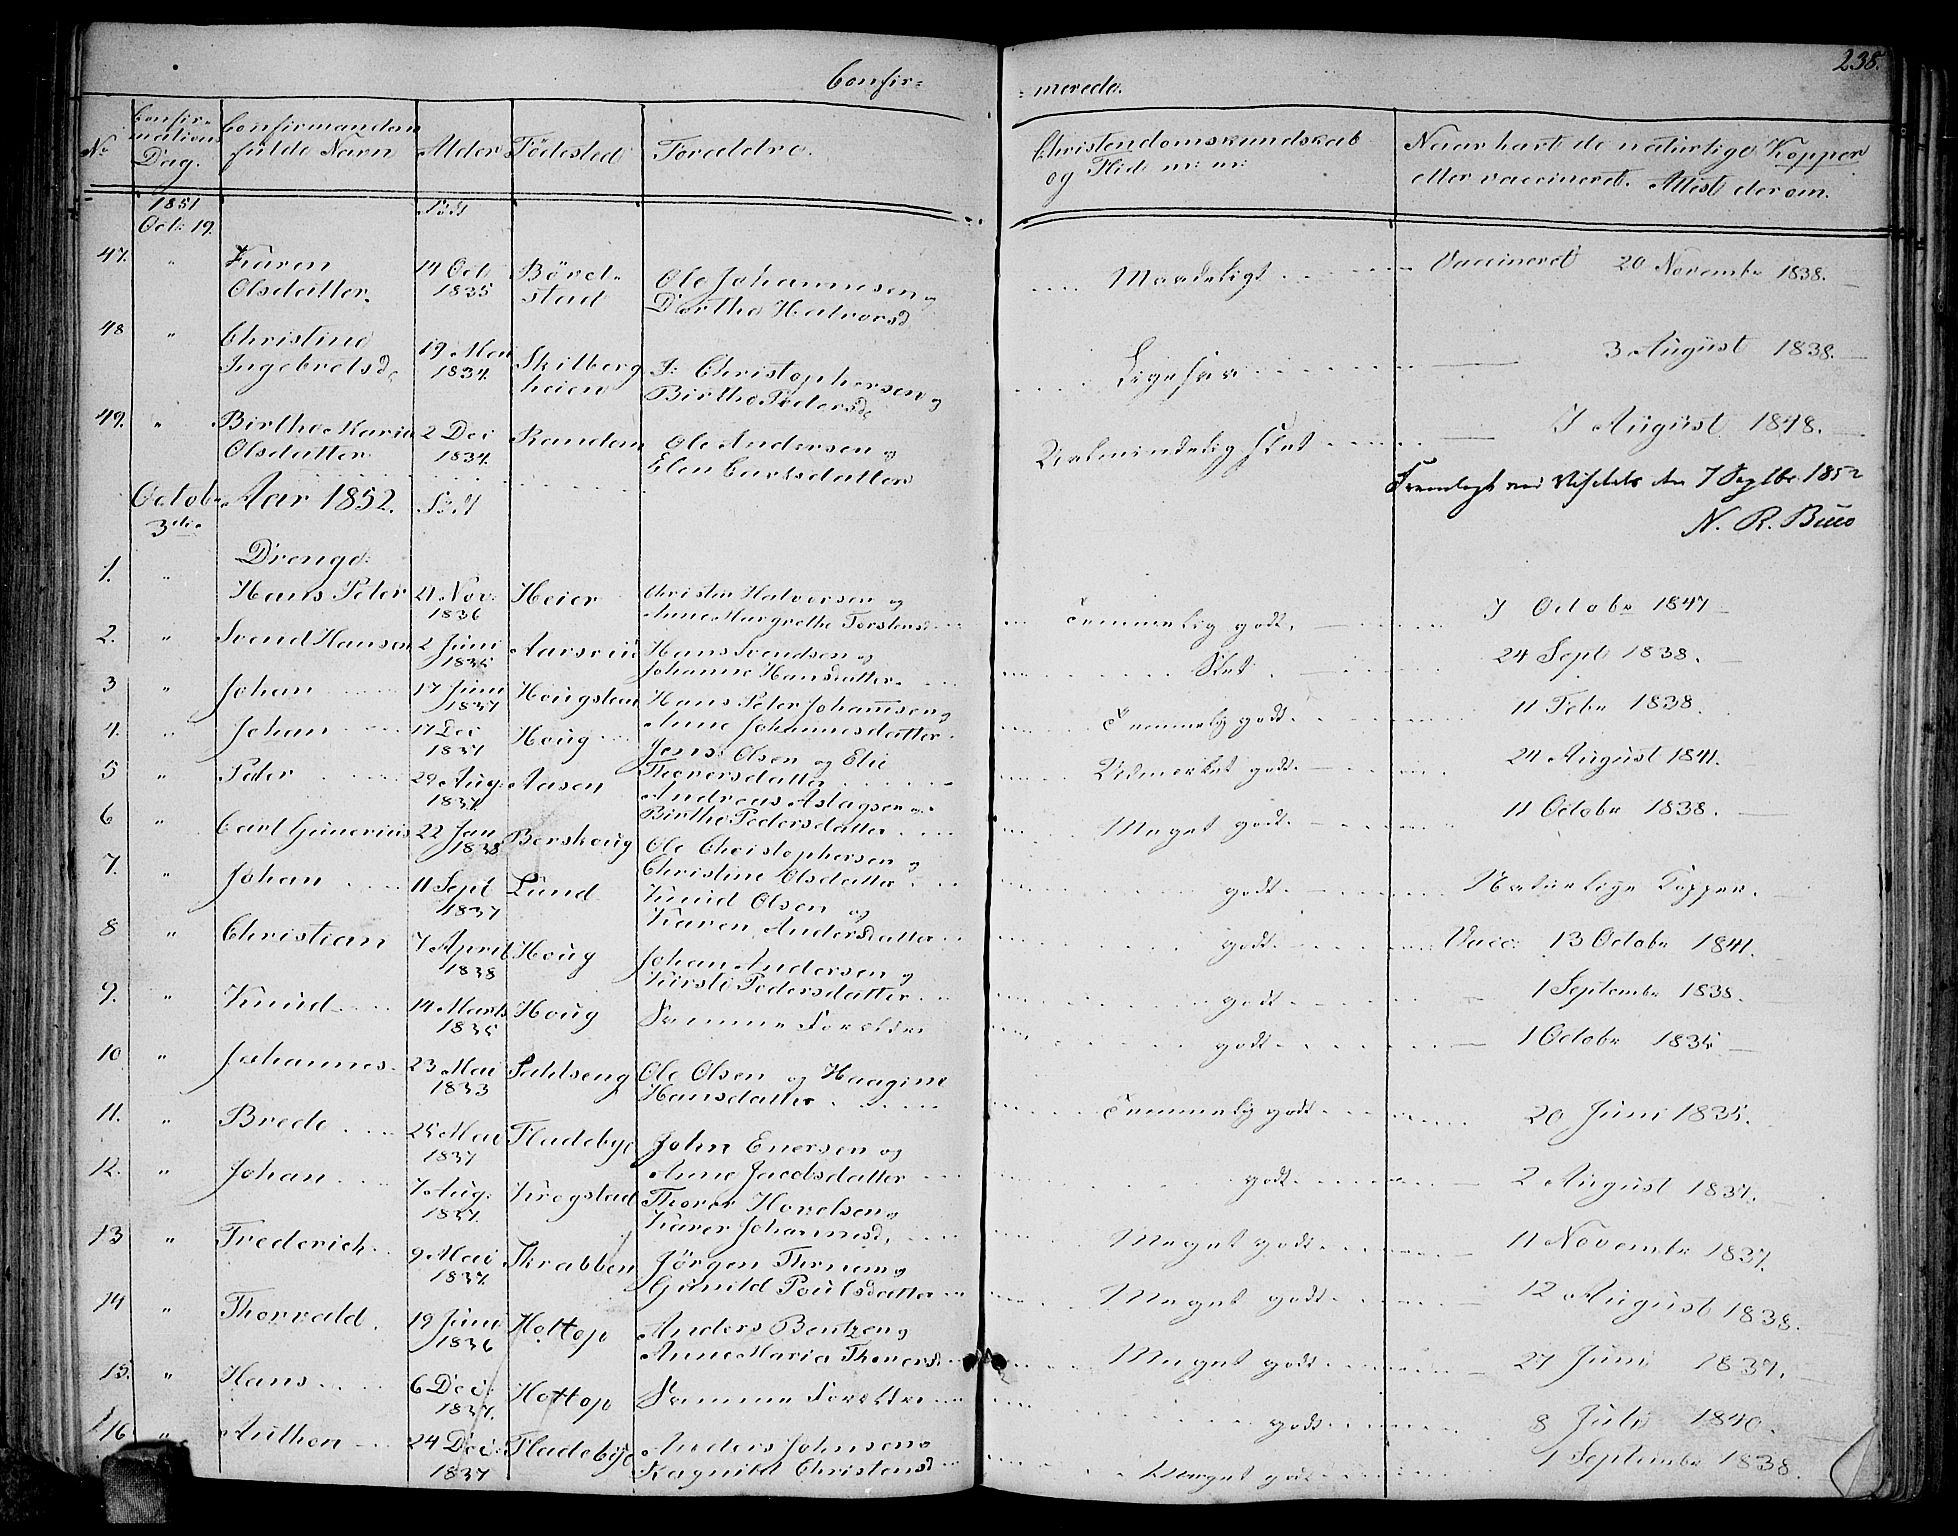 238.
Confir= =merede.
No Confir=mations Dag. Confirmandens fulde Navn Alder Födested Foreldre. Christendomskundskab og Flid m: m: Naar havt de naturlige Kopper eller vaccineret. Attest derom.
1851
Oct: 19.
47. " Karen 14 Oct Börd= Ole Johannesen og Maadeligt Vaccineret 20 Novembr 1838.
Olsdatter. 1835 stad Dorthe Halvorsd
48 " Christine 19 Mai Skilberg I: Christophersen og Ligesaa 3 August 1838.
Ingebretsd 1834. heien Birthe Pedersd
49. " Birthe Maria 2 Dec Randem Ole Andersen og Ualmindelig slet 7 August 1848.
Olsdatter 1834. Elen Carlsdatter
Fremlagt ved Visitats den 7 Septbr. 1852
N. R. Buus
Octobr Aar 1852.
3die
Drenge:
1. " Hans Peter 21 Nov: Heier Christen Halvorsen og Temmelig godt. 7 Octobr 1847
1836 Anne Margrethe Torstensd
2. " Svend Hansen 2 Juni Aarsrud Hans Svendsen og Slet. 24 Sept 1838.
1835 Johanne Hansdatter
3 " Johan 17 Juni Hougsten Hans Peter Johannsen og Temmelig godt. 11 Febr 1838.
1837 Anne Johannesdatter
4. " Johan 17 Dec Houg Jens Olsen og Elie Udmerket godt. 24 August 1841.
1837 Thorersdatter
5 " Peder 29 Aug: Aasen Andreas Aslagsen og Meget godt. 11 Octobr 1838.
1837 Birthe Pedersdatter
6 " Carl Gunerius 22 Jan Berskoug Ole Christophersen og godt. Naturlige Kopper.
1838 Christine Olsdatter
7. " Johan 11 Sept Lund Knud Olsen og godt. Vacc: 13 Octobr 1841.
1837 Karen Andersdatter
8 " Christian 7 April Houg Johan Andersen og godt 1 Septembr 1838.
1838 Kirsti Pedersdatter
9. " Knud 14 Marts Houg Samme Foreldre godt. 1 Octobr 1835.
1835
10 " Johannes 23 Mai Sahlseng Ole Olsen og Haagine Temmelig godt 20 Juni 1835.
1833 Hansdatter
11. " Brede 25 Mai Fladebye John Enersen og godt. 2 August 1837.
1837 Anne Jacobsdatter
12. " Johan 7 Aug: Krogstad Thorer Hovelsen og Meget godt. 11 Novembr 1837.
1837. Karen Johannesd
13 " Frederich 9 Mai Skrabben Jörgen Thrum og Meget godt 12 August 1838.
1837. Gunild Poulsdatter
14 " Thorvald 19 Juni Hottop Anders Bentzen og Meget godt. 27 Juni 1837.
1836 Anne Maria Thorersd
15. " Hans 6 Dec: Hottop Samme Foreldre godt. 8 Juli 1840.
1837.
16. " Anthon 24 Dec: Fladebye Anders Johnsen og Meget godt 1 Septembr 1838.
1837 Ragnild Christensd